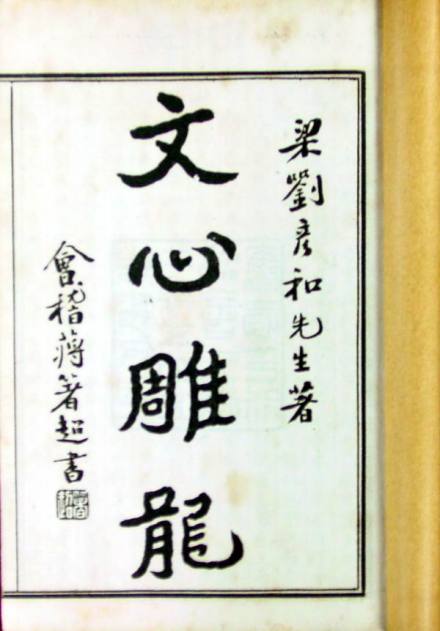 梁劉彥和先生著
文心雕龍
會稽蔣箸超書